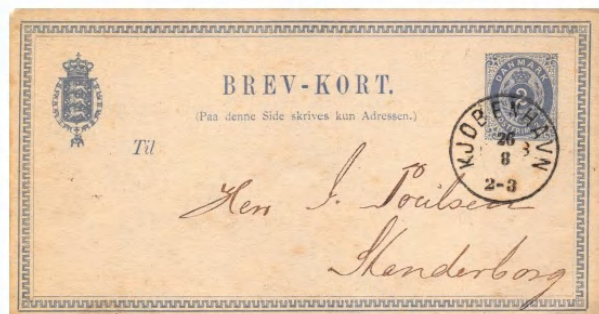 DANMARK
BREV-KORT.
2
(Paa denne Side skrives kun Adressen.)
KJØBENHAVN
26
8
2-3
Til
Herr J. Poulsen
Skanderborg